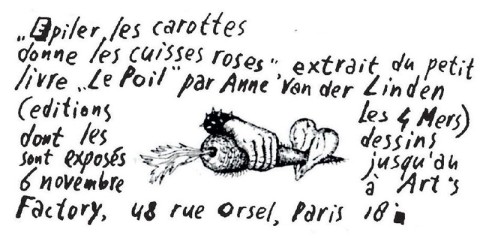 „Epiler les carottes
donne les cuisses roses" extrait du petit
livre „Le Poil" par Anne Van der Linden
(editions Les 4 Mers)
dont les dessins
sont exposés jusqu'au
6 novembre à Art's
Factory, 48 rue Orsel, Paris 18